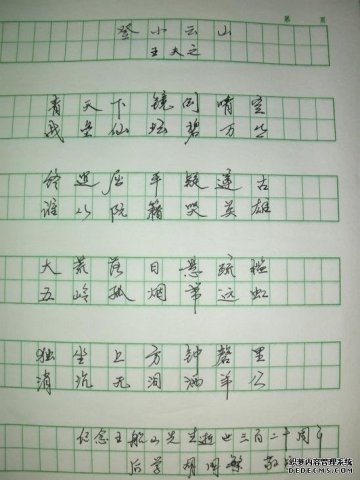 第 页
登小云山
王夫之
青天下镜倒晴空
仙坛碧万
终遣屈平疑邃古
谁以阮籍哭英雄
大荒落日悬疏槛
五岭孤烟带远虹
独坐上方钟磬里
消沉无泪洒羊公
纪念王船山先生逝世三百二十周年
后学 胡国繁 敬
织梦内容管理系统
DEDECMS.COM